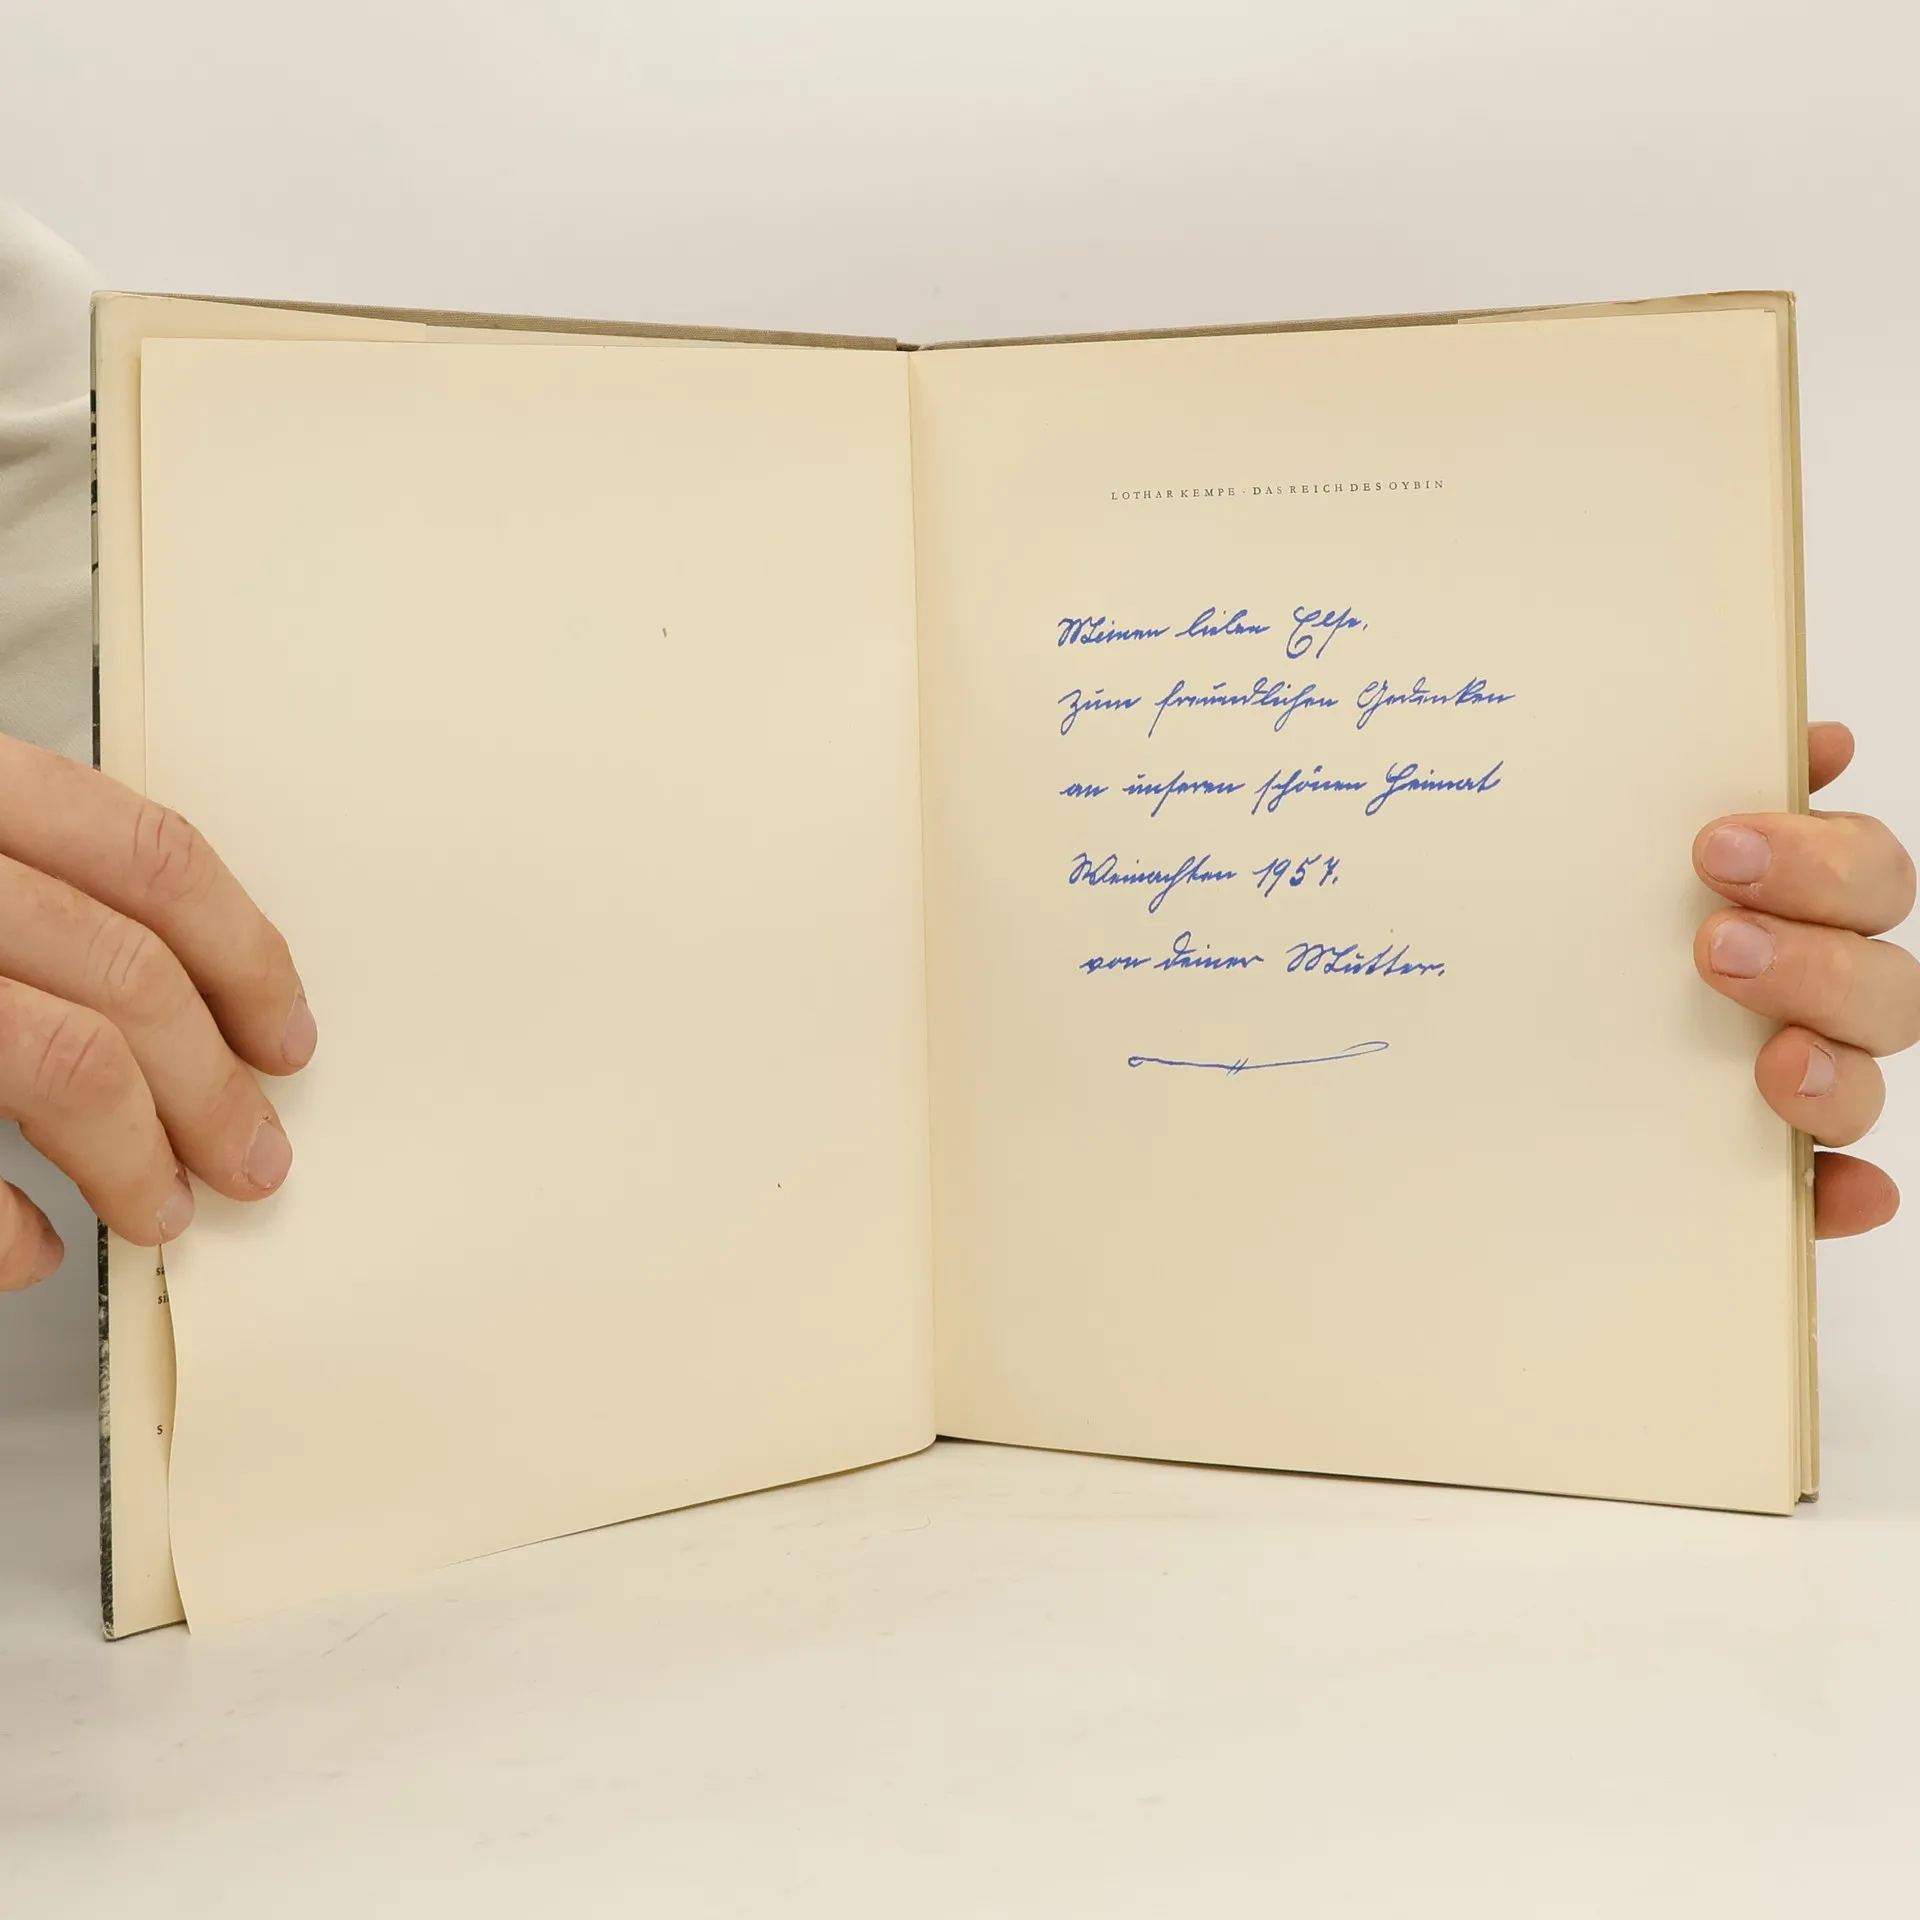 LOTHAR KEMPE · DAS REICH DES OYBIN
Meinen lieben Else.
zum freundlichen Gedenken
an unseren schönen Heimat
Weinachten 1957.
von deiner Mutter.
s
si
S